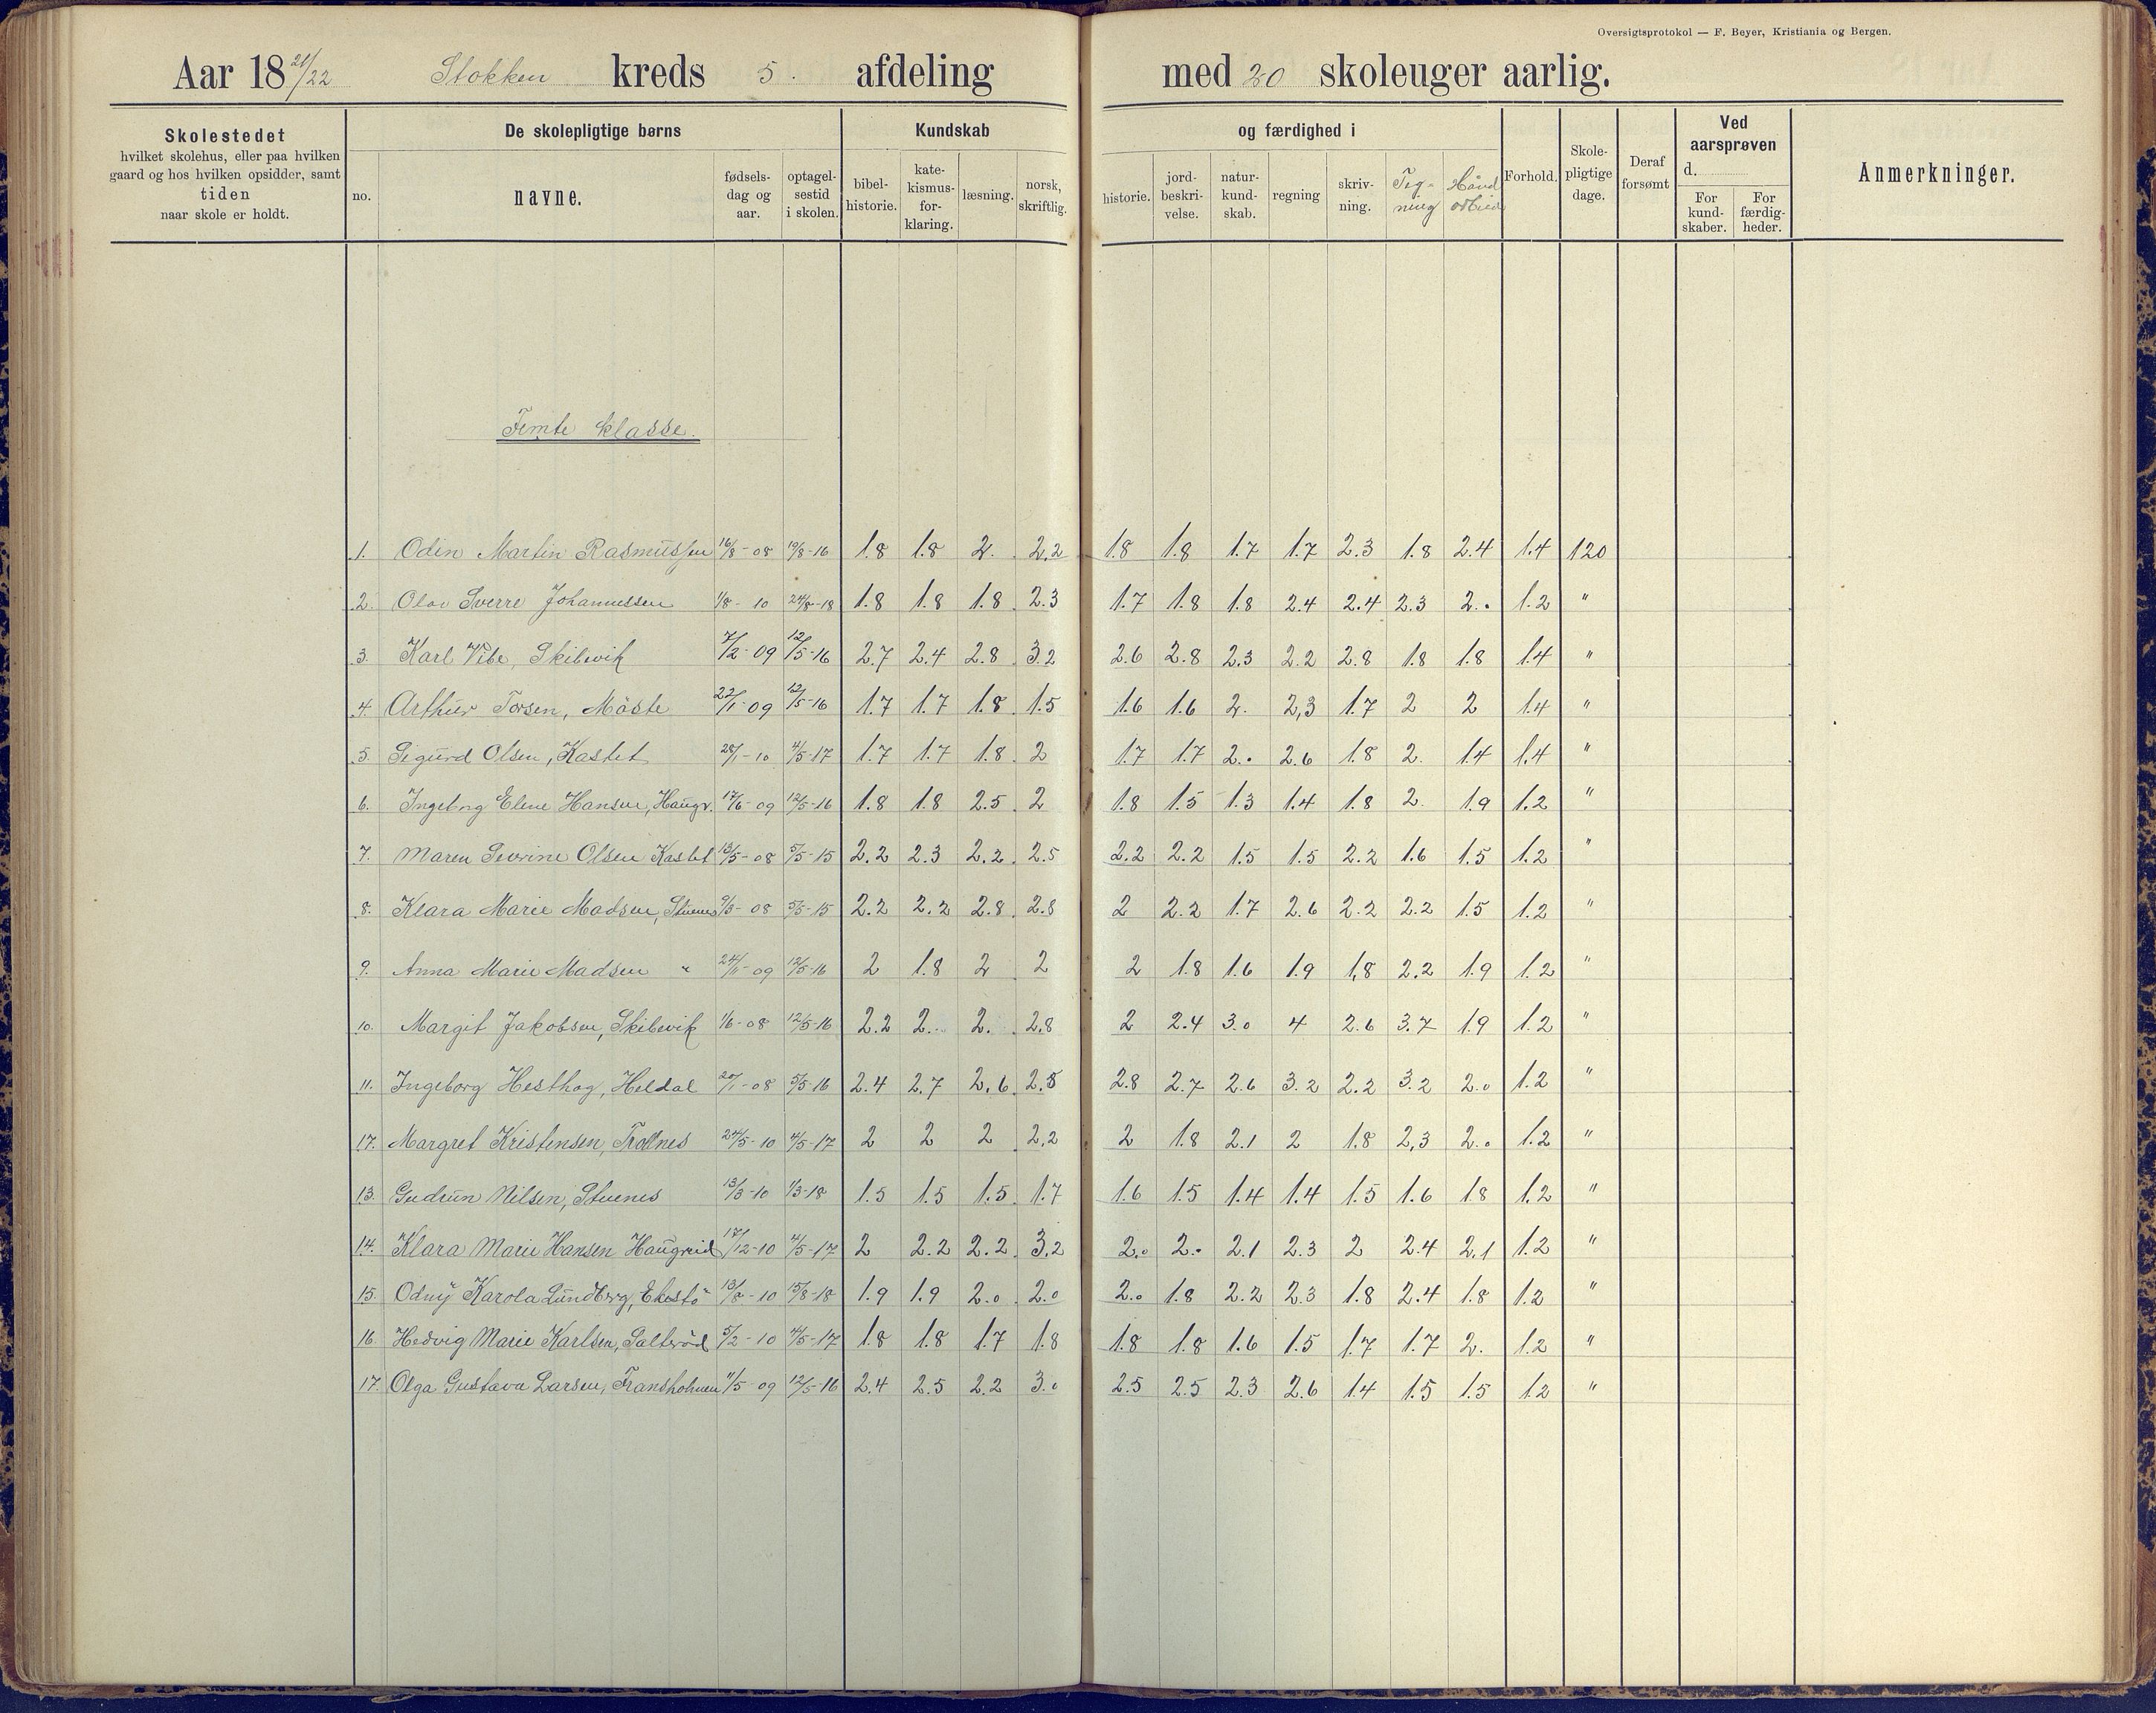 Oversigtsprotokol — F. Beyer, Kristiania og Bergen.
Aar 18 21/22 Stokken kreds 5. afdeling med 20 skoleuger aarlig.
Skolestedet
hvilket skolehus, eller paa hvilken
gaard og hos hvilken opsidder, samt
tiden
naar skole er holdt.
De skolepligtige børns
no.
navne.
fødsels-
dag og
aar.
optagel-
sestid
i skolen.
Kundskab
bibel-
historie.
kate-
kismus-
for-
klaring.
læsning.
norsk,
skriftlig.
og færdighed i
historie.
jord-
beskri-
velse.
natur-
kund-
skab.
regning
skriv-
ning.
Teg-
ning
Hånd
arbeid
Forhold.
Skole-
pligtige
dage.
Deraf
forsømt
Ved
aarsprøven
d.
For
kund-
skaber.
For
færdig-
heder.
Anmerkninger.
Femte klasse.
1. Odin Martin Rasmussen 16/8-08 19/8-16 1.8 1.8 2. 2.2 1.8 1.8 1.7 1.7 2.3 1.8 2.4 1.4 120
2. Olav Sverre Johannessen 1/8-10 24/8-18 1.8 1.8 1.8 2.3 1.7 1.8 1.8 2.4 2.4 2.3 2. 1.2 "
3. Karl Vibe, Skibvik 7/2-09 12/5-16 2.7 2.4 2.8 3.2 2.6 2.8 2.3 2.2 2.8 1.8 1.8 1.4 "
4. Arthur Torsen, Måste 22/1-09 12/5-16 1.7 1.7 1.8 1.5 1.6 1.6 2. 2,3 1.7 2 2 1.4 "
5. Sigurd Olsen, Kastet 28/1-10 4/5-17 1.7 1.7 1.8 2 1.7 1.7 2. 2.6 1.8 2. 1.4 1.4 "
6. Ingeborg Eline Hansen, Haugr. 17/6-09 12/5-16 1.8 1.8 2.5 2 1.8 1.5 1.3 1.4 1.8 2. 1.9 1.2 "
7. Maren Severine Olsen Kastet 13/5-08 5/5-15 2.2 2.3 2.2 2.5 2.2 2.2 1.5 1.5 2.2 1.6 1.5 1.2 "
8. Klara Marie Madsen, Stuenes 9/3-08 5/5-15 2.2 2.2 2.8 2.8 2 2.2 1.7 2.6 2.2 2.2 1.5 1.2 "
9. Anna Marie Madsen " 24/11-09 12/5-16 2 1.8 2 2 2 1.8 1.6 1.9 1,8 2.2 1.9 1.2 "
10. Margit Jakobsen, Skibvik 1/6-08 12/5-16 2.2 2. 2. 2.8 2 2.4 3.0 4 2.6 3.7 1.9 1.2 "
11. Ingeborg Hesthag, Heldal 20/1-08 5/5-16 2.4 2.7 2.6 2.5 2.8 2.7 2.6 3.2 2.2 3.2 2.0 1.2 "
17. Margret Kristensen, Trollnes 24/5-10 4/5-17 2 2 2 2,2 2 1.8 2.1 2 1.8 2,3 2.0 1.2 "
13. Gudrun Nilsen, Stuenes 13/3-10 1/3-18 1.5 1.5 1.5 1.7 1.6 1.5 1.4 1.4 1.5 1.6 1.8 1.2 "
14. Klara Marie Hansen Haugreid 17/12-10 4/5-17 2 2.2 2.2 3,2 2.0 2. 2.1 2.3 2 2.4 2,1 1.2 "
15. Odny Karola Lundberg, Ekestö 13/8-10 15/8-18 1.9 1.9 2.0 2.0 2.0 1.8 2.2 2.3 1.8 2.4 1.8 1.2 "
16. Hedvig Marie Karlsen, Salterød 5/2-10 4/5-17 1.8 1.8 1.7 1.8 1.8 1.8 1.6 1.5 1.7 1.7 2. 1.2 "
17. Olga Gustava Larsen, Fransholmen 11/5-09 12/5-16 2.4 2.5 2.2 3.0 2.5 2.5 2.3 2.6 1.4 1.5 1.5 1.2 "